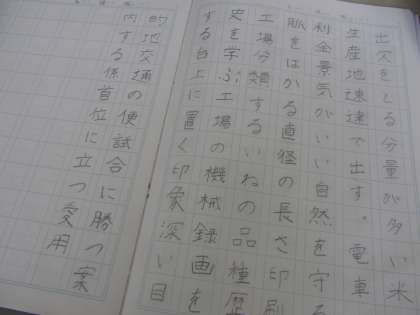 出欠をとる分量が多い米
生産地速達で出す。電車
利金景気がいい自然を守る
脈をはかる直径の長さ印刷
工場分類するいねの品種歴
史を学ぶ工場の機械録画を
する台上に置く印象深い目
的地交通の便試合に勝つ案
内する係首位に立つ